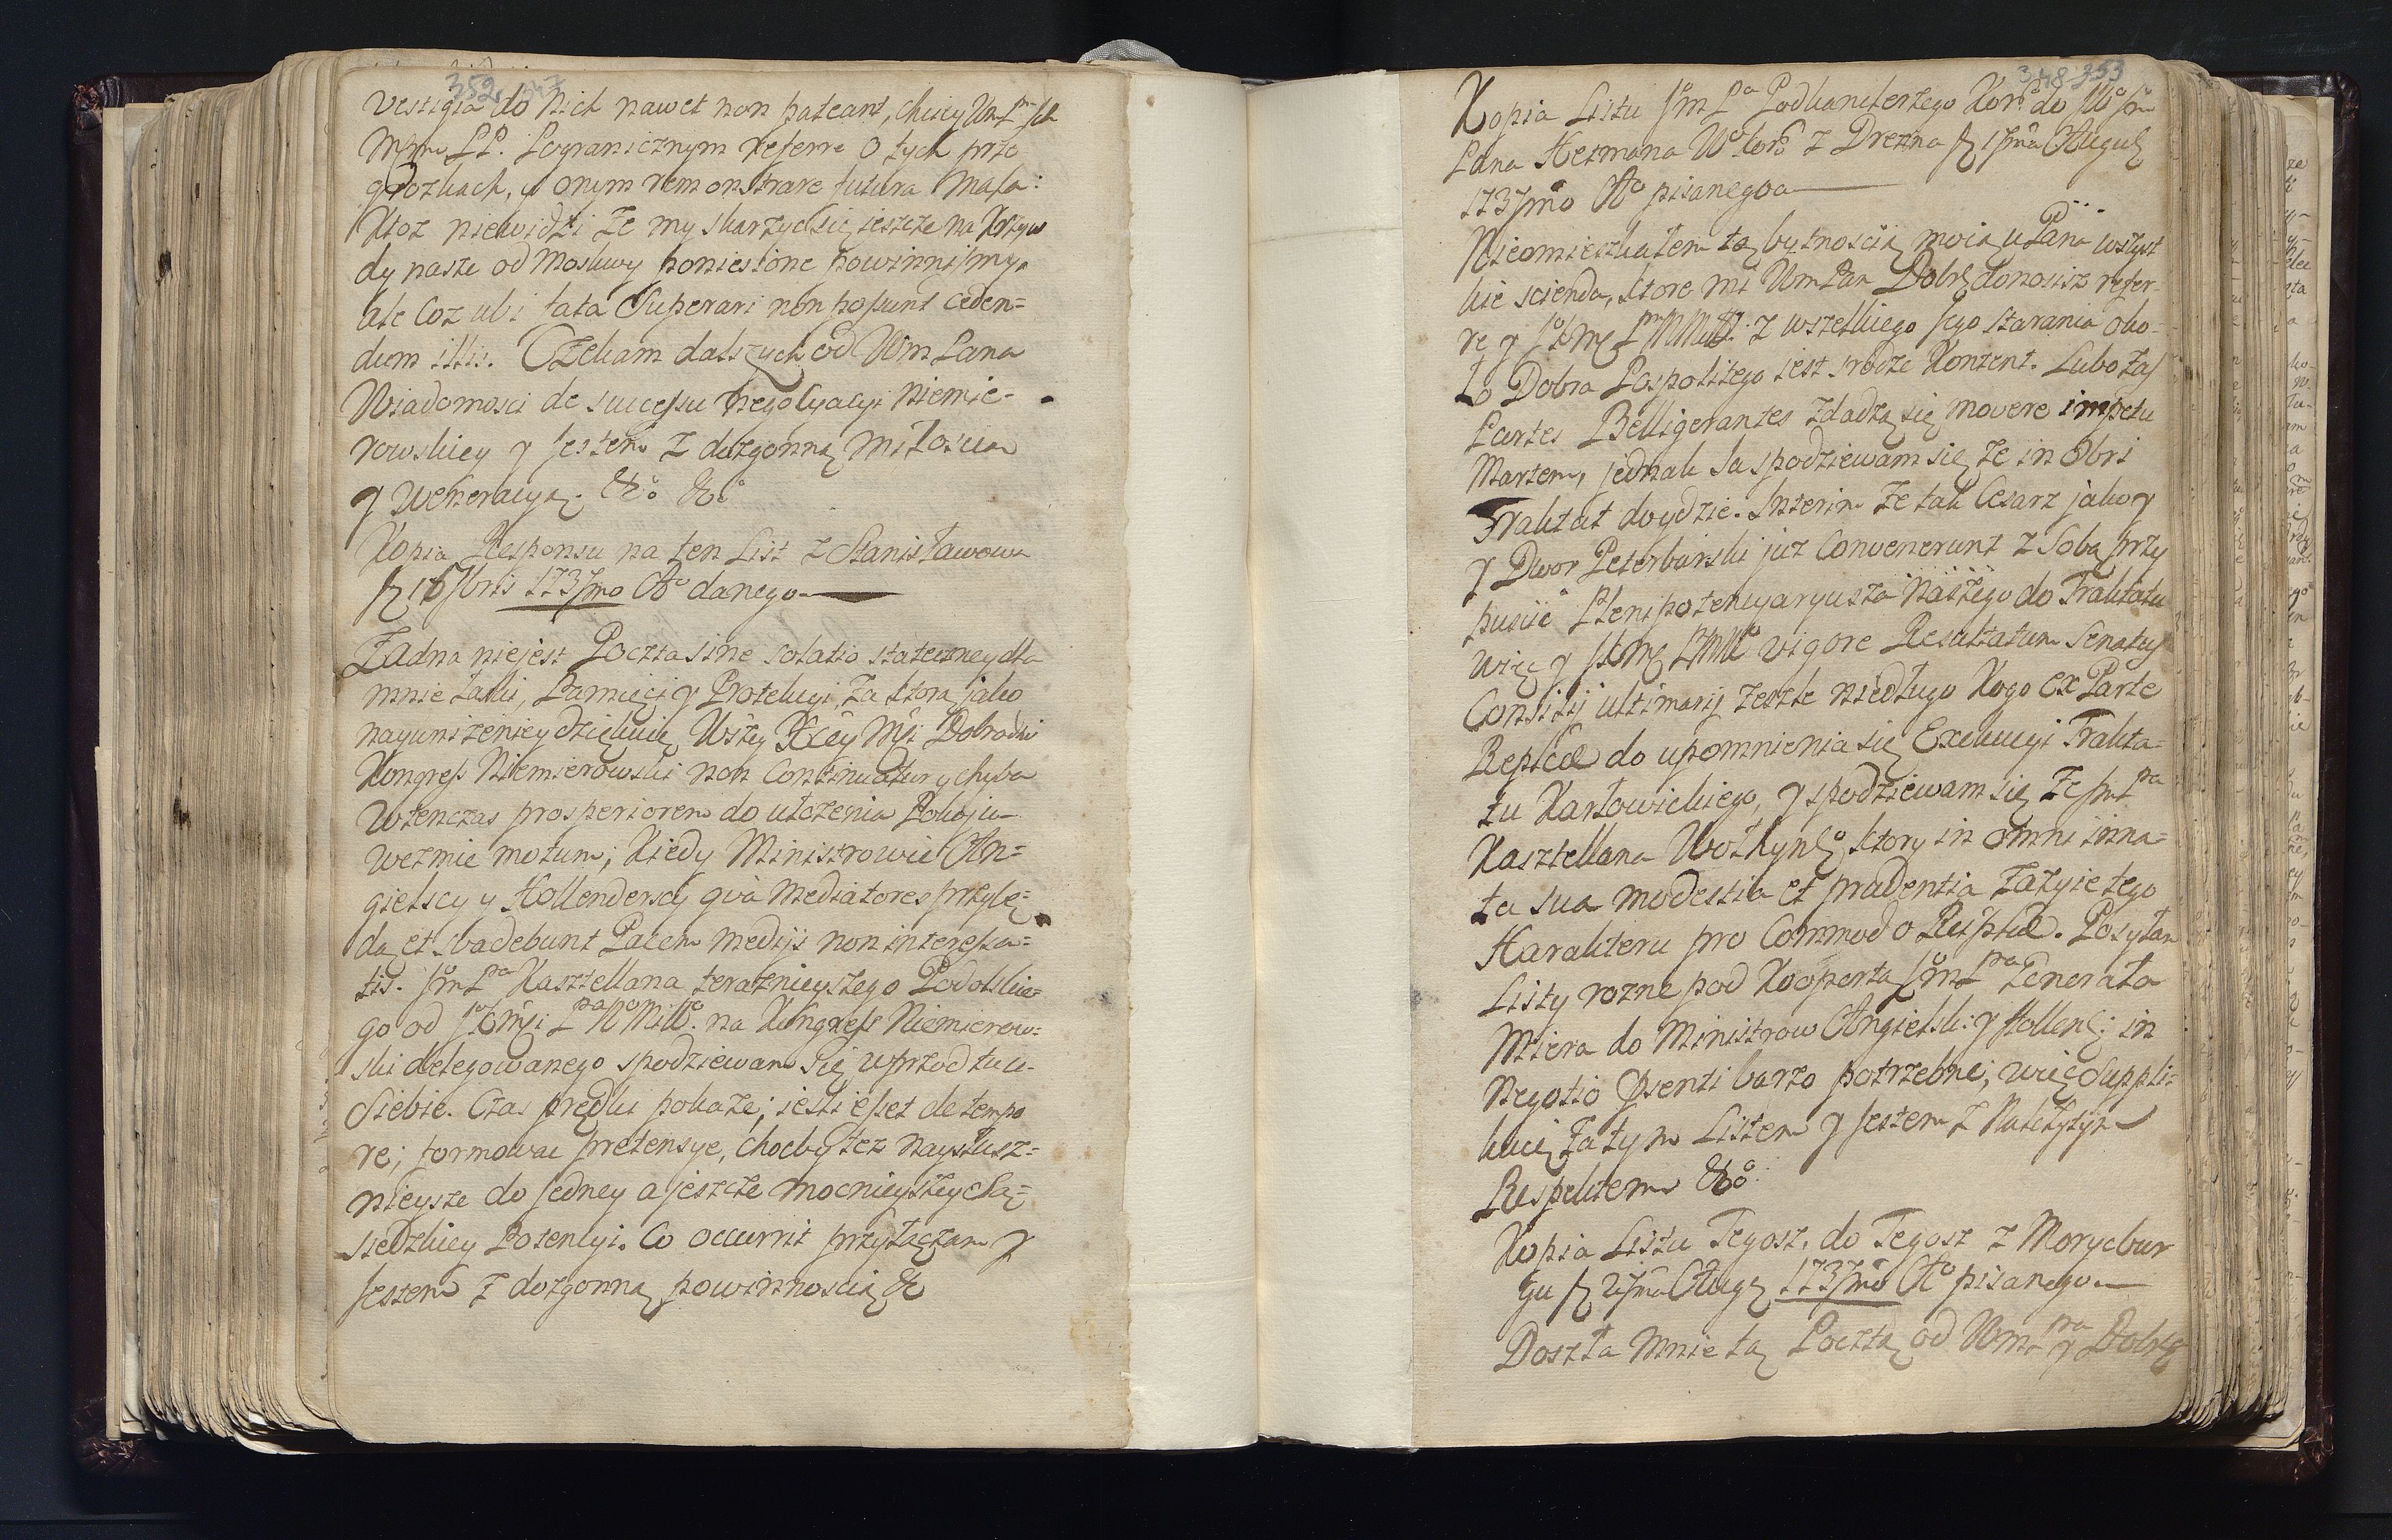 352 347
vestigia do Nich nawet non pateant, chciey Wm
PP. Pogranicznym referre o tych prze
grozkach, y onym remonstrare futura mala:
Ktoz niewidzi ze my skarzyc się jeszcze na Krzyw
dy nasze od Moskwy poniesione powinnismy,
ale Coz ubi fata Superari non possunt ceden=
dum illis. Czekam dalszych od Wm Pana
Wiadomosci de successu Negocyacyi Niemie-
rowskiey y jestem z dozgonną Miłoscia
y Weneracyą. &c &c
Kopia Responsu na ten List z Stanisławowa
7bris 1737mo Ao danego
Zadna niejest Poczta sine solatio stateczney dla
mnie Łaski, Pamięci y Protekcyi, za ktorą jako
nayunizeniey dziękuię Wszey Xcey Mći Dobrodki
Kongress Niemierowski non Continuatur y chyba
Wtenczas prosperiorem do ułozenia Pokoju
wezmie motum, Kiedy Ministrowie An=
gielscy y Hollenderscy qva Mediatores przybę=
dą et svadebunt Pacem medijs non interessa=
tis. Jm Pa Kasztellana teraznieyszego Podolskie=
go od na Kongress Niemierow=
ski delegowanego spodziewam się wprzod tu u
Siebie. Czas prędki pokaze; jesli esset de tempo
re; formowac pretensye, chocby tez naysłusz=
nieysze do jedney a jeszcze mocnieyszey Są=
siedzkiey Potencyi. Co occurrit przyłączam y
jestem z dozgonną powinnoscią &c
348 353
Kopia Listu Jm Pa Podkanclerzego Kor: do
Pana Hetmana z Drezna Augusti
1737mo Ao pisanego
Nieomieszkałem tą bytnoscią moią u Pana wszyst
kie scienda, ktore mi Wm Pan Dobr donosisz refer-
re y z wszelkiego Jego starania oko-
ło Dobra Pospolitego jest srodze Kontent. Lubo zas
Partes Belligerantes zdadzą się movere impetu
Martem, jednak Ja spodziewam się ze in 8bri
Traktat doydzie. Interim ze tak Cesarz jako y
y Dwor Peterburski juz Convenerunt z Sobą przy
puscic Plenipotencyaryusza Naszego do Traktatu
więc y vigore Resultatum Senatus
Consilij ultimarij zeszle niedługo Kogo ex Parte
Reiplcæ do upomnienia się Exekucyi Trakta=
tu Karłowickiego, y spodziewam się ze Jm Pa
Kasztellana Wołhyn, ktory in omni inna=
ta sua modestia et prudentia zazyie tego
Harakteru pro Commodo Reiplcæ. Posyłam
Listy rozne pod Kopertą Jm Pa Generała
Miera do Ministrow Angielsk: y Hollend: in
Negotio psenti barzo potrzebne, więc Suppli=
kuię za tym Listem y jestem z Nalezytym
Respektem &c.
Kopia Listu Tegosz, do Tegosz z Morycbur
gu Aug 1737mo Ao pisanego
Doszła mnie tą Pocztą od Wm Pna y Dobr